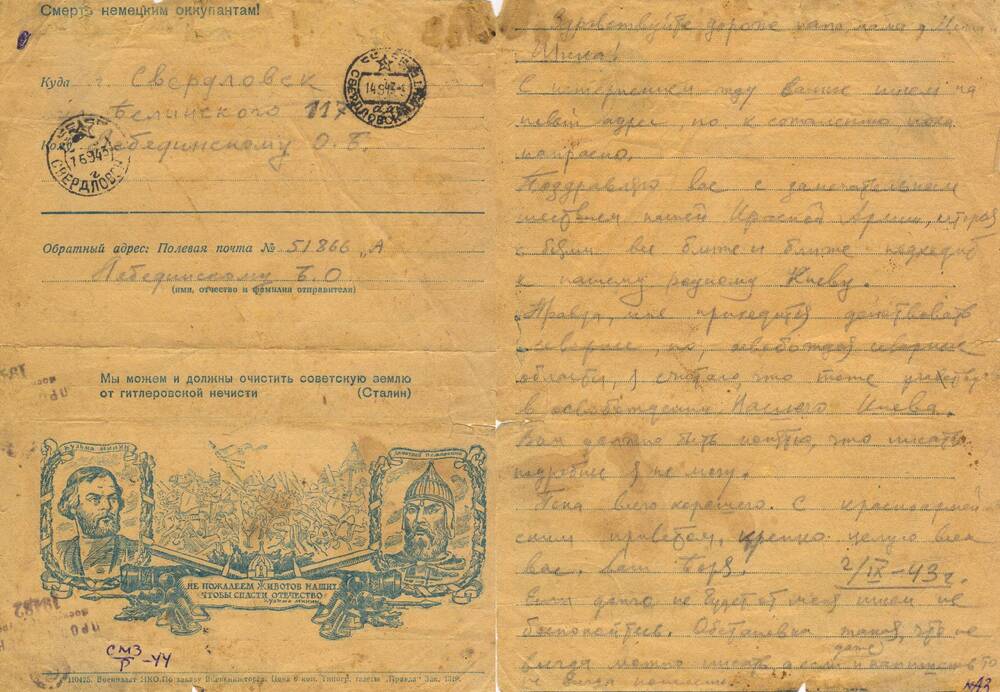 Смерть немецким оккупантам!
Куда г. Свердловск
Белинского 117
Кому Лебединскому О. Б.
СВЕРДЛОВСК
СВЕРДЛОВСК
Обратный адрес: Полевая почта № 51866 „А
Лебединскому Б. О
(имя, отчество и фамилия отправителя)
Мы можем и должны очистить советскую землю
от гитлеровской нечисти (Сталин)
КУЗЬМА МИНИН
ДМИТРИЙ ПОЖАРСКИЙ
НЕ ПОЖАЛЕЕМ ЖИВОТОВ НАШИХ,
ЧТОБЫ СПАСТИ ОТЕЧЕСТВО
КУЗЬМА МИНИН
СМЗ
Р -44
Воениздат НКО. По заказу Военкниготорга. Цена 6 коп. Типогр. газеты „Правда“ Зак. 1319.
Здравствуйте дорогие папа, мама
С нетерпением жду ваших писем на
новый адрес, но к сожалению пока
напрасно.
Поздравляю вас с замечательным
шествием нашей Красной Армии, которая
с боями все ближе и ближе подходит
к нашему родному Киеву.
Правда, мне приходится действовать
севернее, но, освобождая северные
области, я считаю, что тоже участвую
в освобождении Нашего Киева.
Вам должно быть понятно, что писать
подробнее я не могу.
Пока всего хорошего. С красноармей
ским приветом, крепко целую всех
вас. Ваш Боря. 2/IX-43 г.
Если долго не будет от меня писем не
беспокойтесь. Обстановка такая, что не
всегда можно писать, а если даже и напишешь то
не всегда пошлешь.
№42